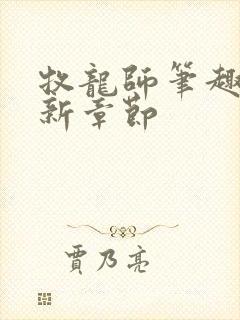 牧龍師筆趣
新章節
賈乃亮